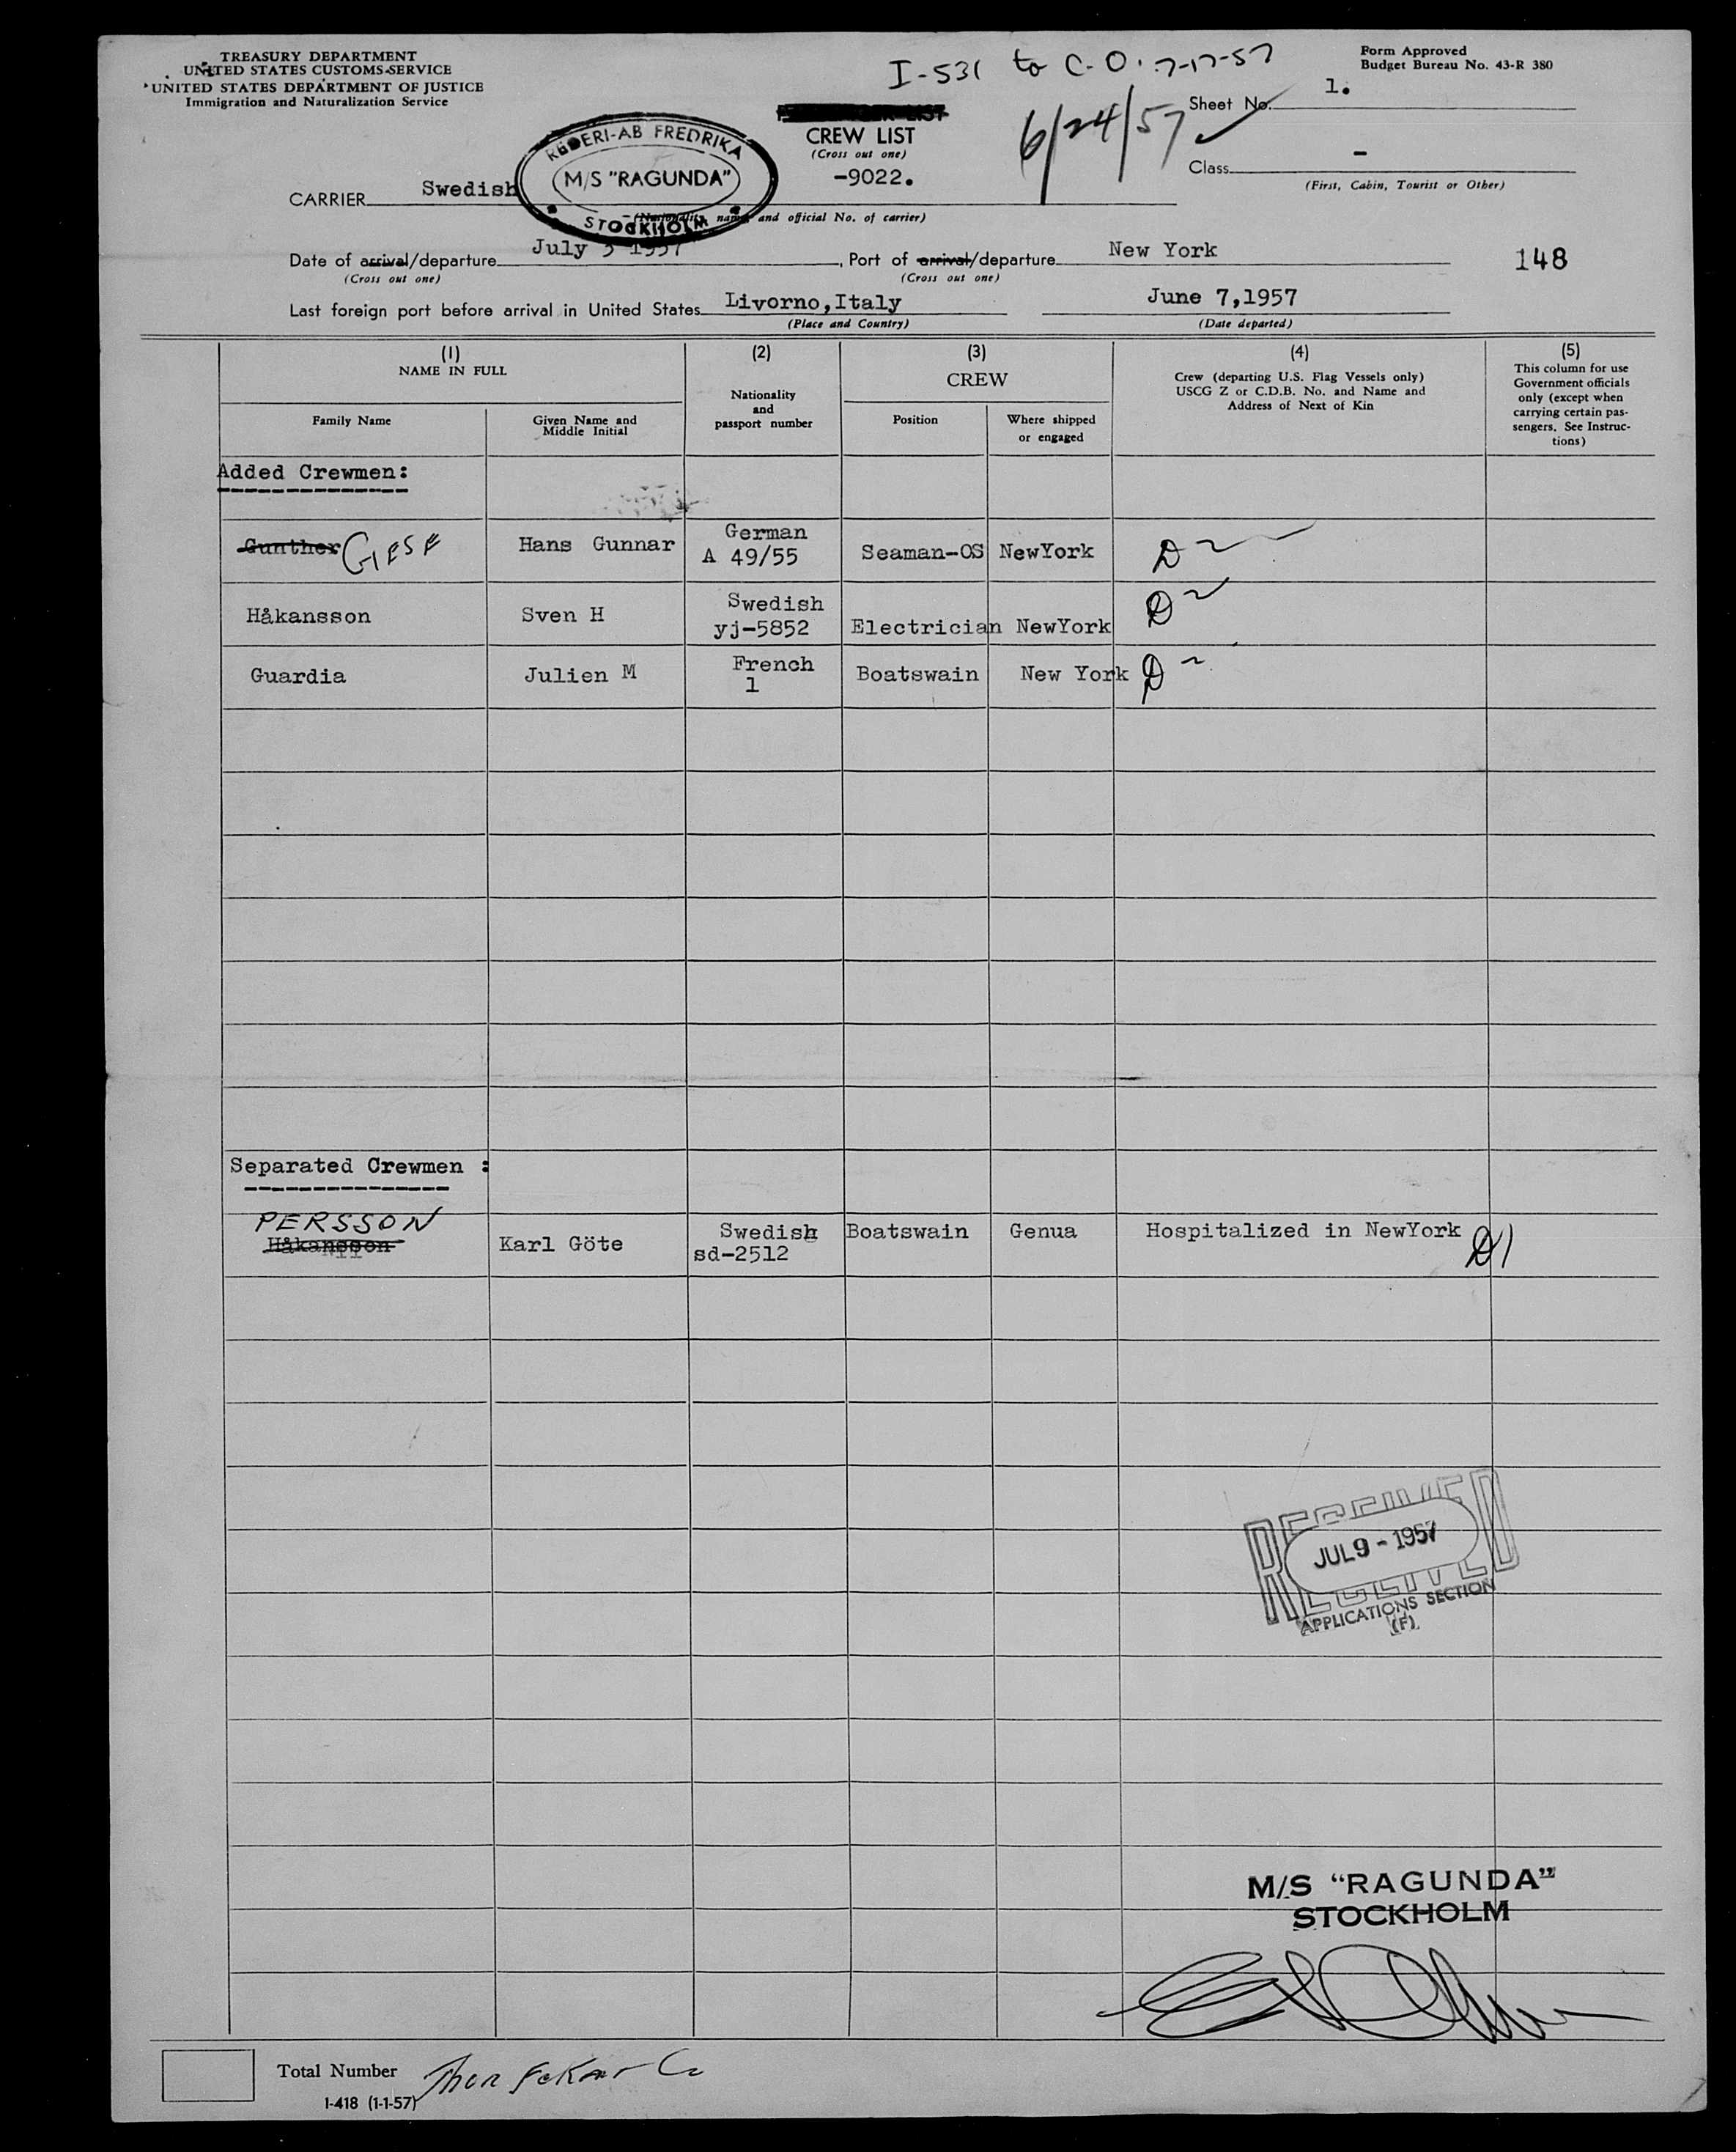 TREASURY DEPARTMENT
UNITED STATES CUSTOMS SERVICE
UNITED STATES DEPARTMENT OF JUSTICE
Immigration and Naturalization Service
I-531 to C.O. 7-17-57
Form Approved
Budget Bureau No. 43-R 380
Sheet No. 1.
CREW LIST
(Cross out one)
-9022.
6/24/57
Class -
(First, Cabin, Tourist or Other)
REDERI-AB FREDRIKA
M/S "RAGUNDA"
STOCKHOLM
CARRIER Swedish
(Nationality, name and official No. of carrier)
Date of arrival/departure July 3 1957, Port of arrival/departure New York
148
(Cross out one) (Cross out one)
Last foreign port before arrival in United States Livorno,Italy June 7,1957
(Place and Country) (Date departed)
(1) (2) (3) (4) (5)
NAME IN FULL
Family Name
Given Name and
Middle Initial
Nationality
and
passport number
CREW
Position
Where shipped
or engaged
Crew (departing U.S. Flag Vessels only)
USCG Z or C.D.B. No. and Name and
Address of Next of Kin
This column for use
Government officials
only (except when
carrying certain pas-
sengers. See Instruc-
tions)
Added Crewmen:
Gunther GIESE Hans Gunnar German A 49/55 Seaman-OS NewYork D
Håkansson Sven H Swedish yj-5852 Electrician NewYork D
Guardia Julien M French 1 Boatswain New York D
Separated Crewmen :
PERSSON
Håkansson Karl Göte Swedish sd-2512 Boatswain Genua Hospitalized in NewYork
RECEIVED
JUL 9 - 1957
RECEIVED
APPLICATIONS SECTION
(F)
M/S "RAGUNDA"
STOCKHOLM
Total Number
I-418 (1-1-57)